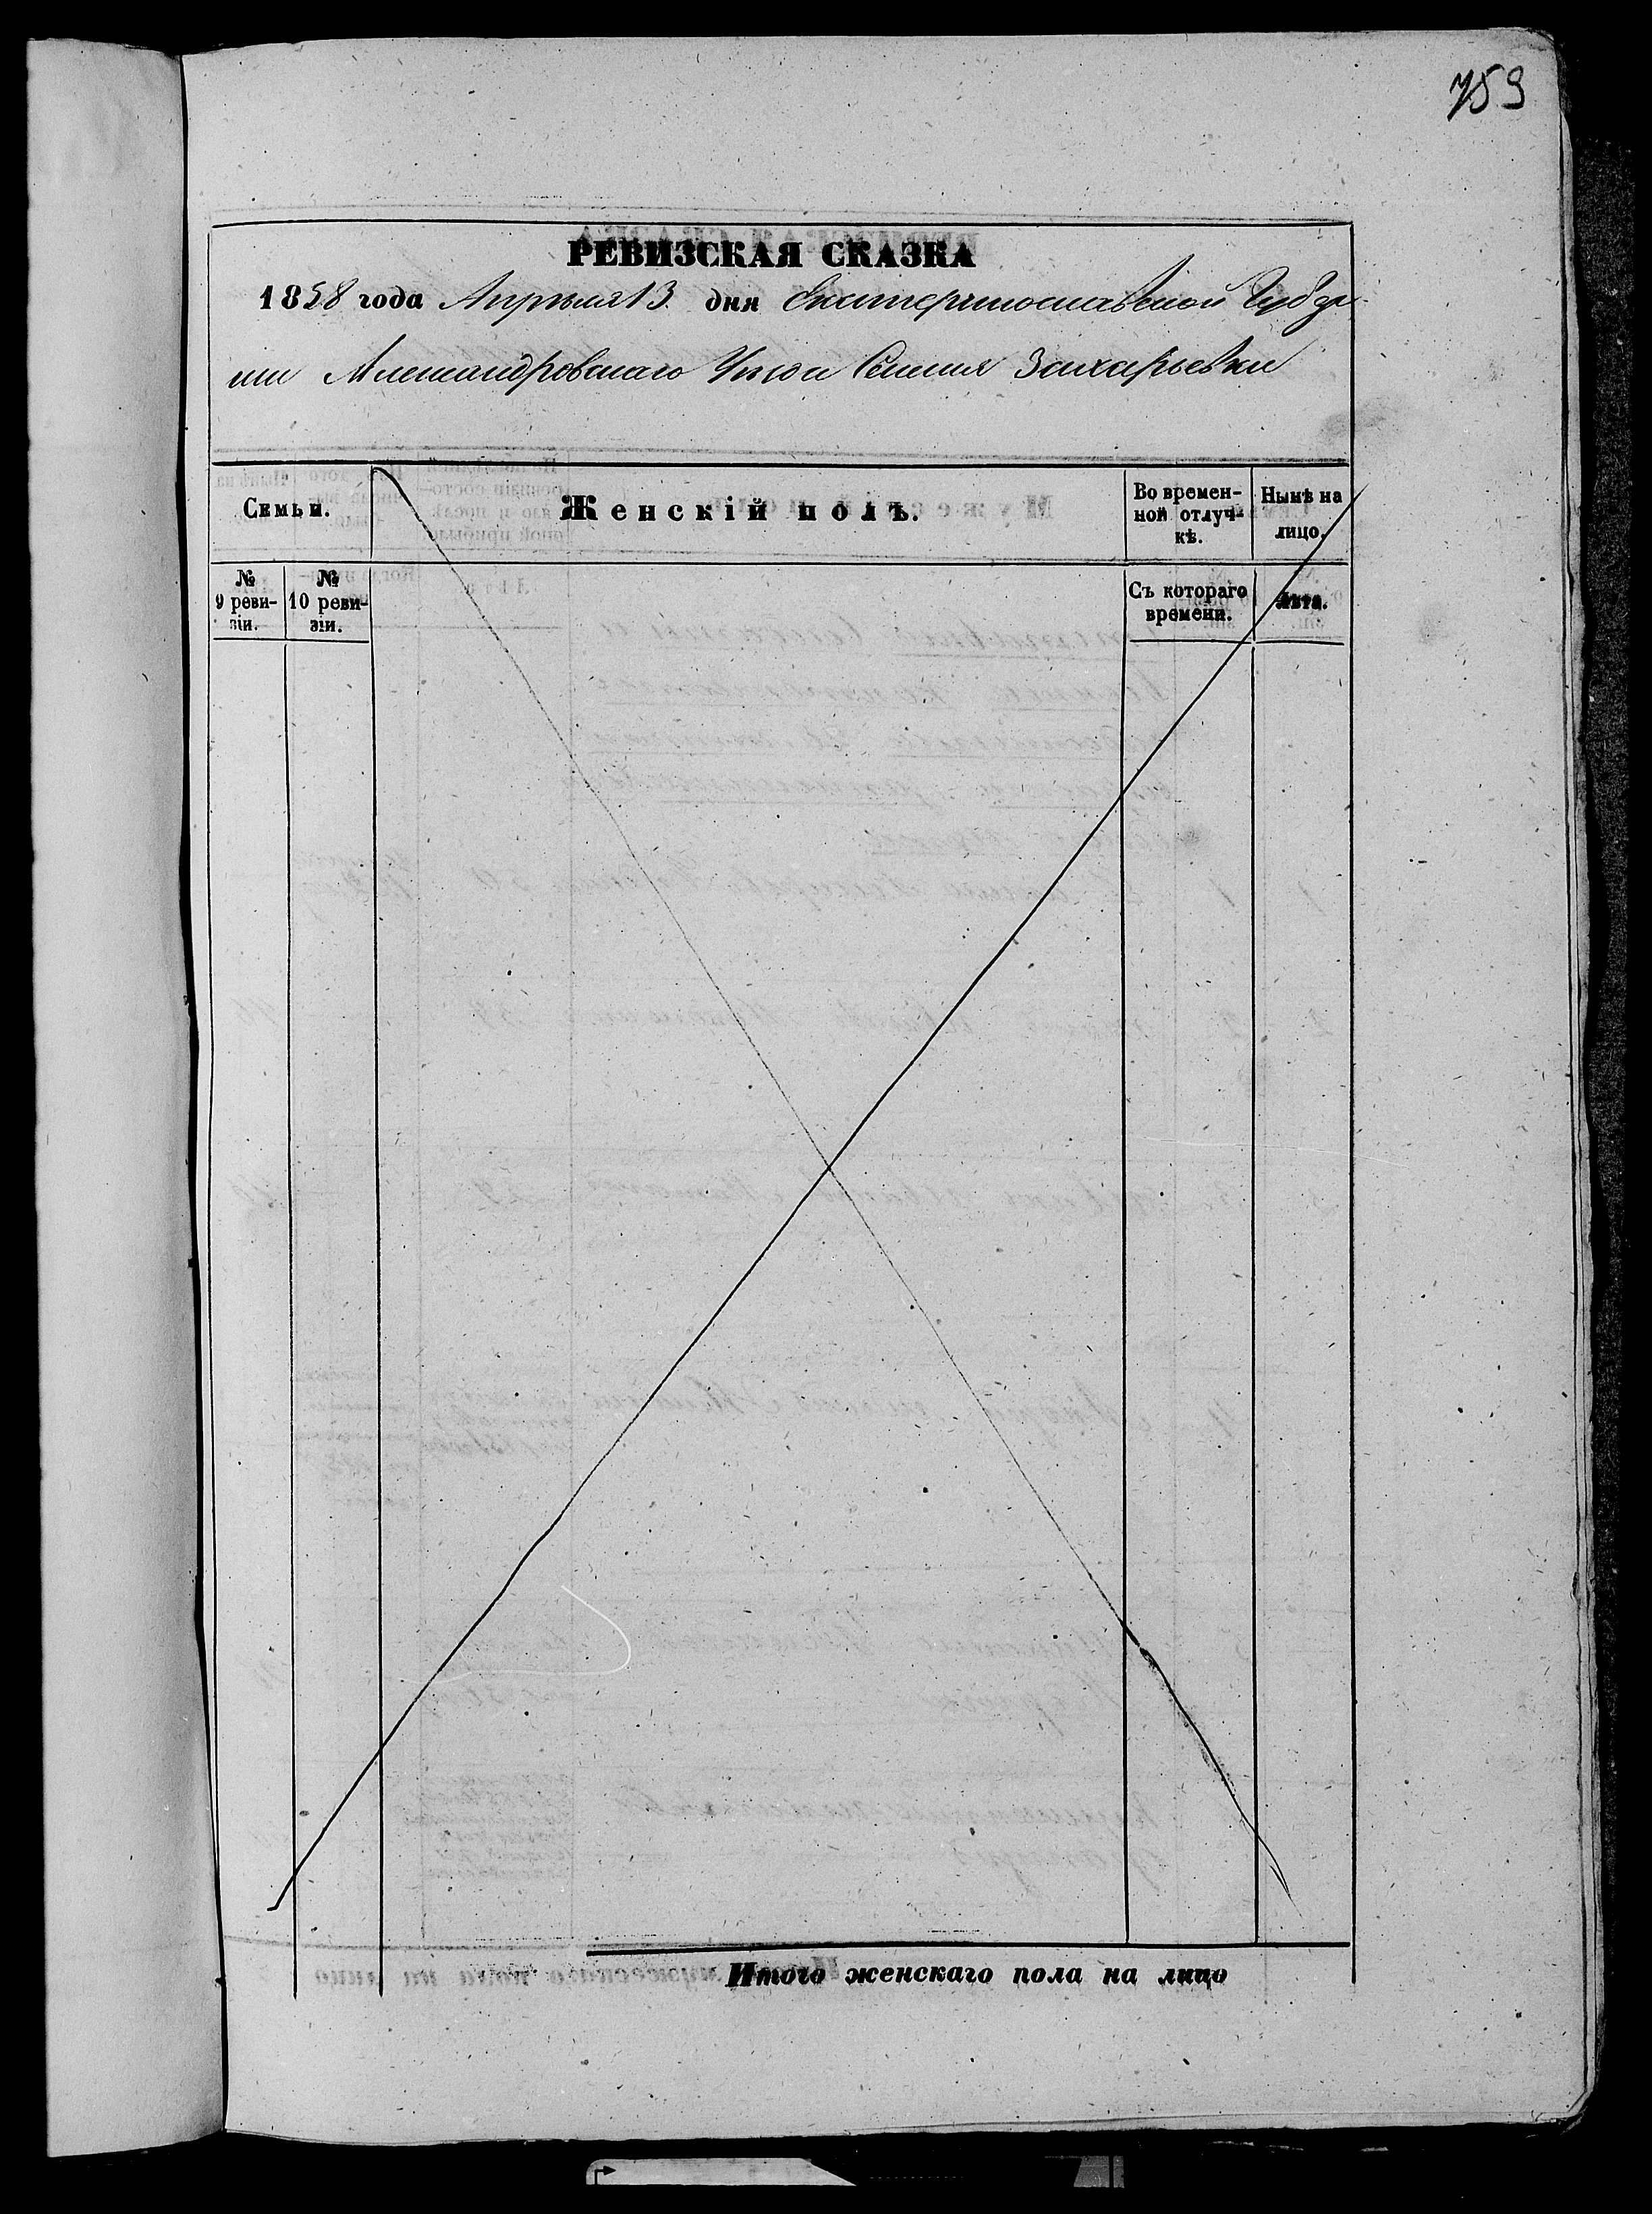 759
РЕВИЗСКАЯ СКАЗКА
1858 года Апреля 13 дня Екатеринославской Губер
нии Александровскаго Уезда Селения Захарьевки
Семьи.
Женскій полъ.
Во времен-
ной отлуч-
кѣ.
Нынѣ на
лицо.
№
9 реви-
зіи.
№
10 реви-
зіи.
Съ котораго
времени.
Лѣта.
Итого женскаго пола на лицо